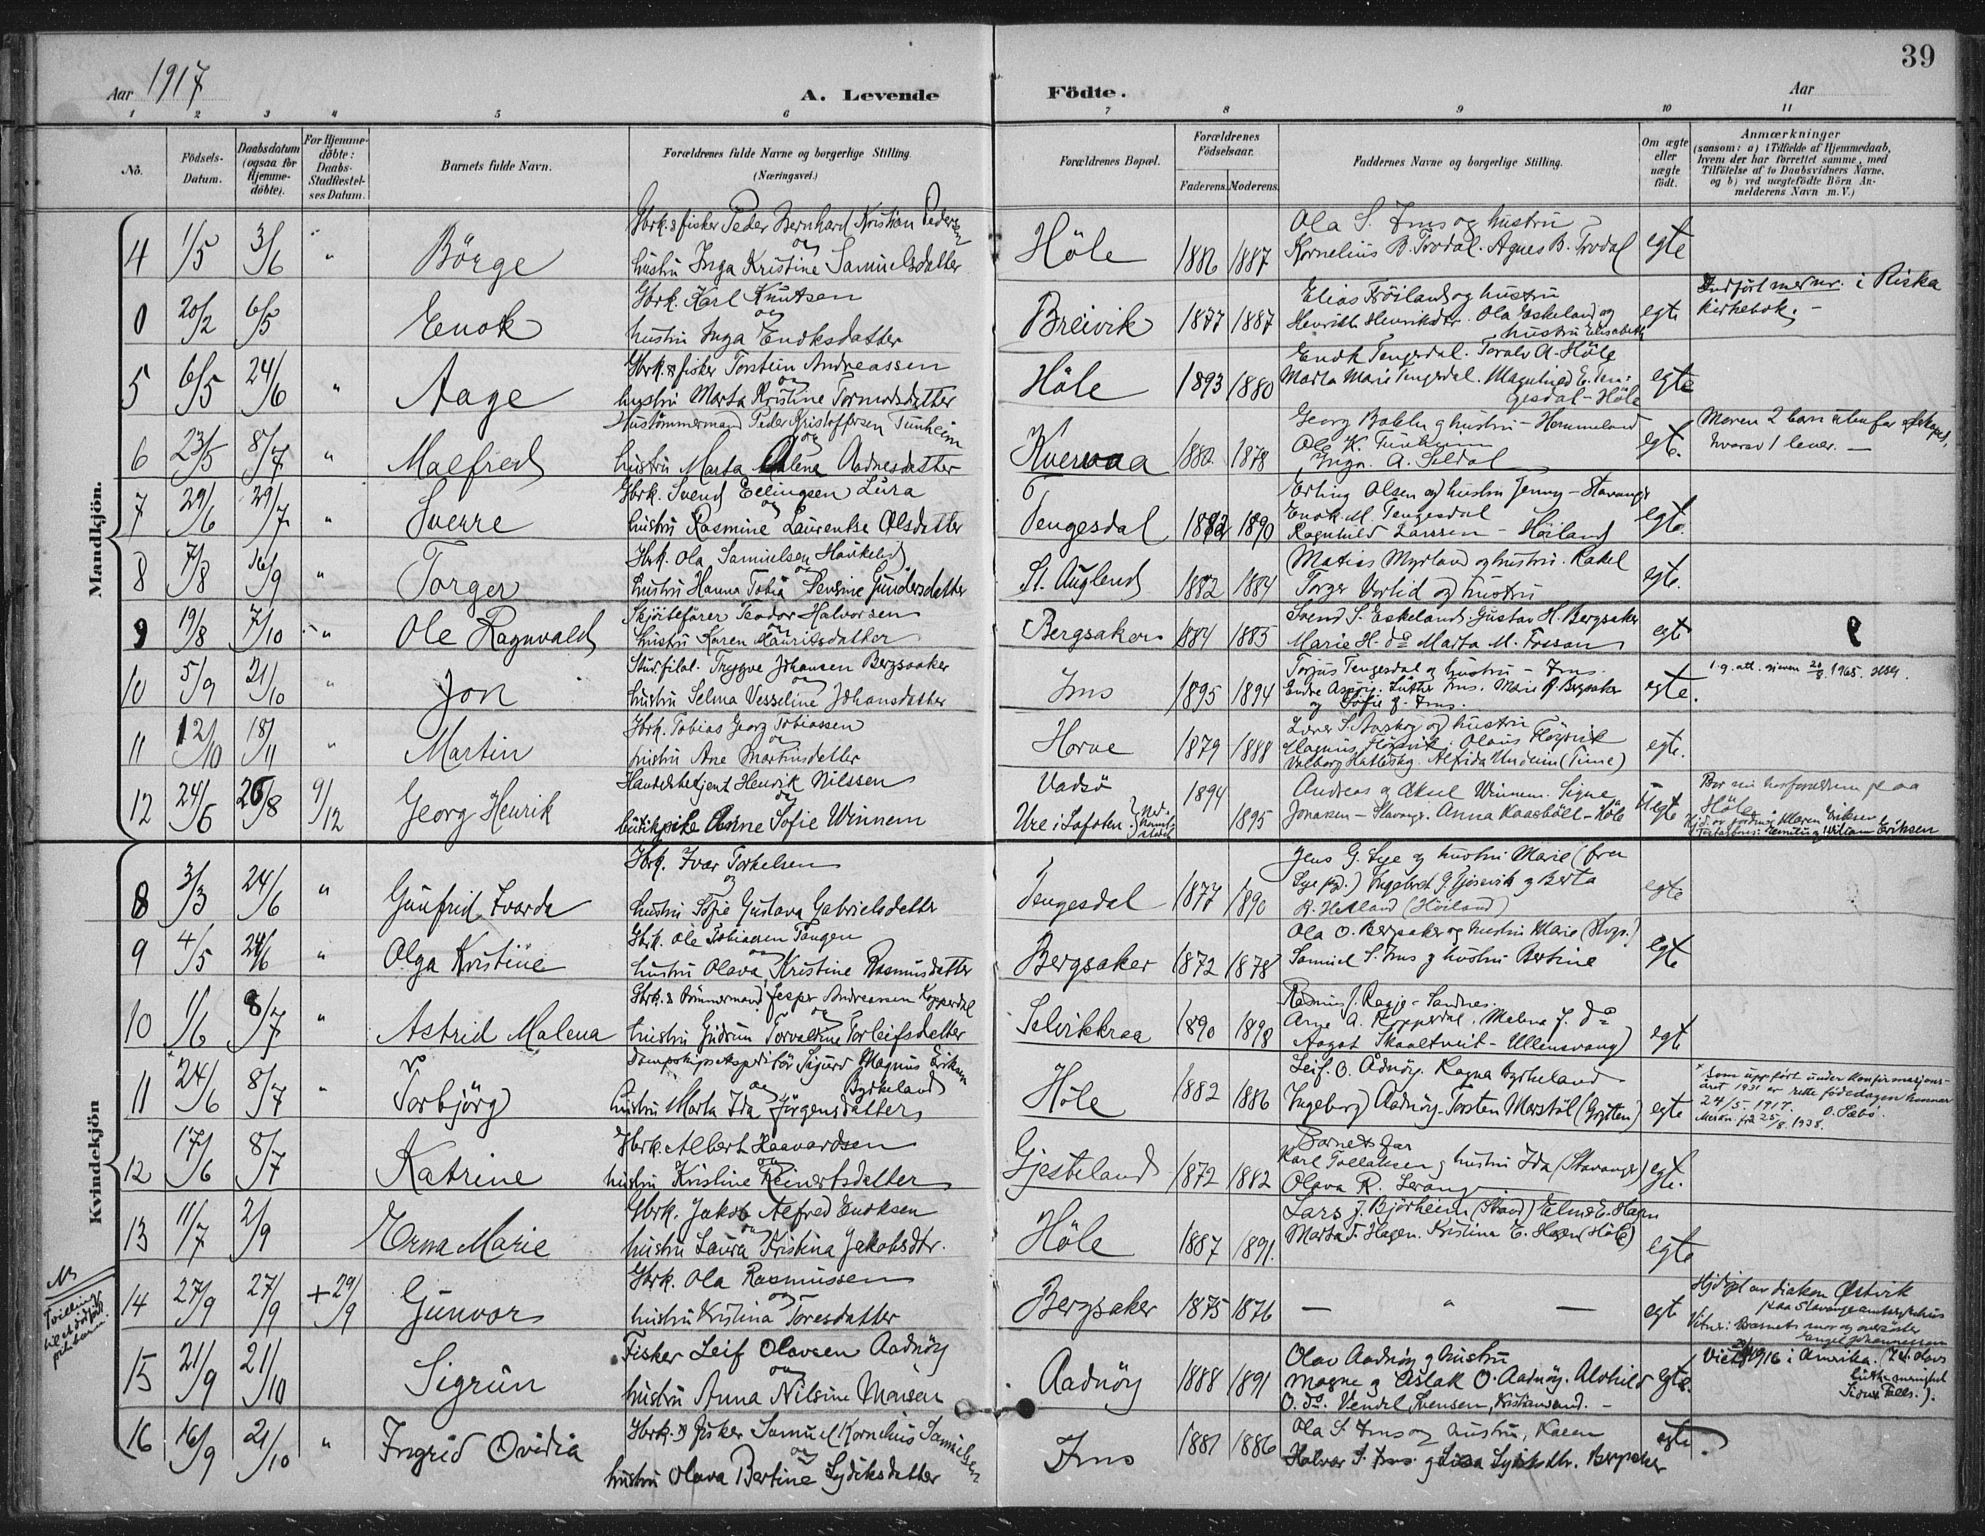 39
Aar 1917
A. Levende Födte.
Aar
1 2 3 4 5 6 7 8 9 10 11
No.
Födsels-Datum.
Daabsdatum (ogsaa for Hjemmedöbte).
For Hjemmedöbte: Daabs-Stadfæstelses Datum.
Barnets fulde Navn.
Forældrenes fulde Navne og borgerlige Stilling (Næringsvei.)
Forældrenes Bopæl.
Forældrenes Födselsaar.
Faderens. Moderens.
Faddernes Navne og borgerlige Stilling.
Om ægte eller uægte födt.
Anmærkninger
(saasom: a) i Tilfælde af Hjemmedaab, hvem der har forrettet samme, med Tilföielse af to Daabsvidners Navne, og b) ved uægtefödte Börn Anmelderens Navn m. V.)
Mandkjön.
4 1/5 3/6 " Börge
Gbrk. & fisker Peder Bernhard Kristian Pedersen
og
hustru Inga Kristine Samuelsdatter
Höle 1886 1887
Ola S. Ims og hustru
Kornelius B. Trodal. Agnes B. Trodal
egte
0 20/2 6/5 Enok
Gbrk. Karl Knutsen
og
hustru Inga Enoksdatter
Breivik 1877 1887
Elias Fröiland og hustru
Henriette Henriksdtr. Ola Eskeland og
hustru Elisabeth
egte
Indfört med nr. i Riska
kirkebok. –
5 6/5 24/6 " Aage
Gbrk. & fisker Torstein Andreassen
og
hustru Marta Kristine Tormodsdatter
Höle 1893 1880
Enok Tengesdal. Torale A. Höle
Marta Marie Tengesdal. Magnhild E. Ten-
gesdal – Höle
egte
6 23/5 8/7 " Malfred
Hustömmermand Peder Kristoffersen Tunheim
og
hustru Marta Malena Aadnesdatter
Kvervaa 1880 1878
og hustru – Hommeland
Ole K. Tunheim
Ingv. A. Seldal
egte.
Moren 2 barn utenfor egteskapet,
hvorav 1 lever. –
7 29/6 29/7 " Sverre
Gbrk. Svend Ellingsen Lura
og
hustru Rasmine Laurentse Olsdatter
Tengesdal 1882 1890
Erling Olsen og hustru Jenny – Stavanger
Enok M. Tengesdal
Ragnhild Larssen – Höiland
egte.
8 7/8 16/9 " Torger
Gbrk. Ola Samuelsen Haukelid
og
hustru Hanna Tobia Sensine Gundersdatter
St. Auglend 1882 1884
Matias Myrland og hustru Rakel
Torger Vorlid og hustru
egte.
9 19/8 7/10 " Ole Ragnvald
Skjöitefører Teodor Halvorsen
og
hustru Karen Lauritsdatter
Bergsaker 1884 1885
Svend S. Eskeland. Gustav H. Bergsaker
Marie H. do Marta M. Fossan
egte
10 5/9 21/10 " Jon
Stud. filol. Tryggve Johansen Bergsaaker
og
hustru Selma Vesseline Johansdatter
Ims 1895 1894
Torjus Tengesdal og hustru – Ims
Endre Aspöy. Luther Ims. Marie J. Bergsaker
og Sofie J. Ims.
egte.
11 12/10 18/11 " Martin
Gbrk. Tobias Georg Tobiassen
og
hustru Ane Martinsdatter
Horve 1879 1888
Lærer S. Aarskog og hustru
Magnus Flöysvik. Olaus Flöysvik
Valborg Hatleskog. Alfida Undheim (Time)
egte.
12 24/6 26/8 9/12 Georg Henrik
Handelsbetjent Henrik Nilssen
og
butikpike Anne Sofie Winnem
Vadsö 1894
Ure i Lofoten 1895
Andreas og Aksel Winnem. Signe
Jonassen – Stavanger. Anna Kaasböll – Höle
Uegte
Bor nu hos forældrene paa
Höle.
Kvindekjön
8 3/3 24/6 " Gunfrid Ivarda
Gbrk. Ivar Torkelsen
og
hustru Sofie Gustava Gabrielsdatter
Tengesdal 1877 1890
Jens G. Lye og hustru Marie (fra
Lye pgd.) Ingebret G. Gjösevik og Berta
R. Helland (Höiland)
egte
9 4/5 24/6 " Olga Kristine
Gbrk. Ole Tobiassen Tangen
og
hustru Olava Kristine Rasmusdatter
Bergsaker 1872 1878
Ola O. Bergsaker og hustru Marie
Samuel S. Ims og hustru Bertine
egte
10 1/6 8/7 " Astrid Malena
Gbrk. & tömmermand Jesper Andreassen Kopperdal
og
hustru Gudrun Torvaldine Torleifsdatter
Selvikkraa 1890 1898
Rasmus J. Rægje – Sandnes.
Arne A. Kopperdal. Malena J. do
Aagot Skaaltveit – Ullensvang
egte
11 24/6 8/7 " Torbjörg
Dampskipsekspeditör Sigurd Magnus Eriksen
og Byrkeland
hustru Marta Ida Jörgensdatter
Höle 1882 1886
Leif O. Ådnöy. Ragna Byrkeland
Ingeborg Aadnöy. Torsten Marstöl
egte
× Som uppfört under konfirmasjons-
året 1931 er rette födedagen hennar
24/5. 1917. O. Sæbö.
Merkn. frå 25/8. 1938.
12 17/6 8/7 Katrine
Gbrk. Albert Haavardsen
og
hustru Kristine Reinertsdatter
Gjesteland 1872 1882
Barnets far
Karl Tollaksen og hustru Ida (Stavanger)
Olava R. Lerang
egte.
13 11/7 2/9 Erna Marie
Gbrk. Jakob Alfred Enoksen
og
hustru Laura Kristina Jakobsdtr.
Höle 1887 1891.
Lars J. Björheim (Strand) Elmer E. Hagen
Marta T. Hagen. Kristina E. Hagen (Höle)
egte
Tvilling
til et dödfödt
pikebarn.
14 27/9 27/9 + 29/9 Gunvor
Gbrk. Ola Rasmussen
og
hustru Kristina Toresdatter
Bergsaker 1875 1876
– " –
egte
Hjdöpt av diakon Østvik
paa Stavanger amtssykehus
Vitner: Barnets mor og oversöster
Engel Johannessen
15 21/9 21/10 Sigrun
Fisker Leif Olavsen Aadnöy
og
hustru Anna Nilsine Monsen
Aadnöy 1888 1891
Olav Aadnöy og hustru
Magne og Aslak O. Aadnöy. Alvhild
O. do. Vendel Svensen, Kristiansand. –
egte.
Viet 1916 i Amerika.
16 16/9 21/10 " Ingrid Ovidia
Gbrk. & fisker Samuel Kornelius Samuelsen
og
hustru Olava Bertine Lydiksdatter
Ims 1881 1886
Ola S. Ims og hustru, Karen
Halvor S. Ims og Lisa Lydiksdtr. Bergsaker
egte